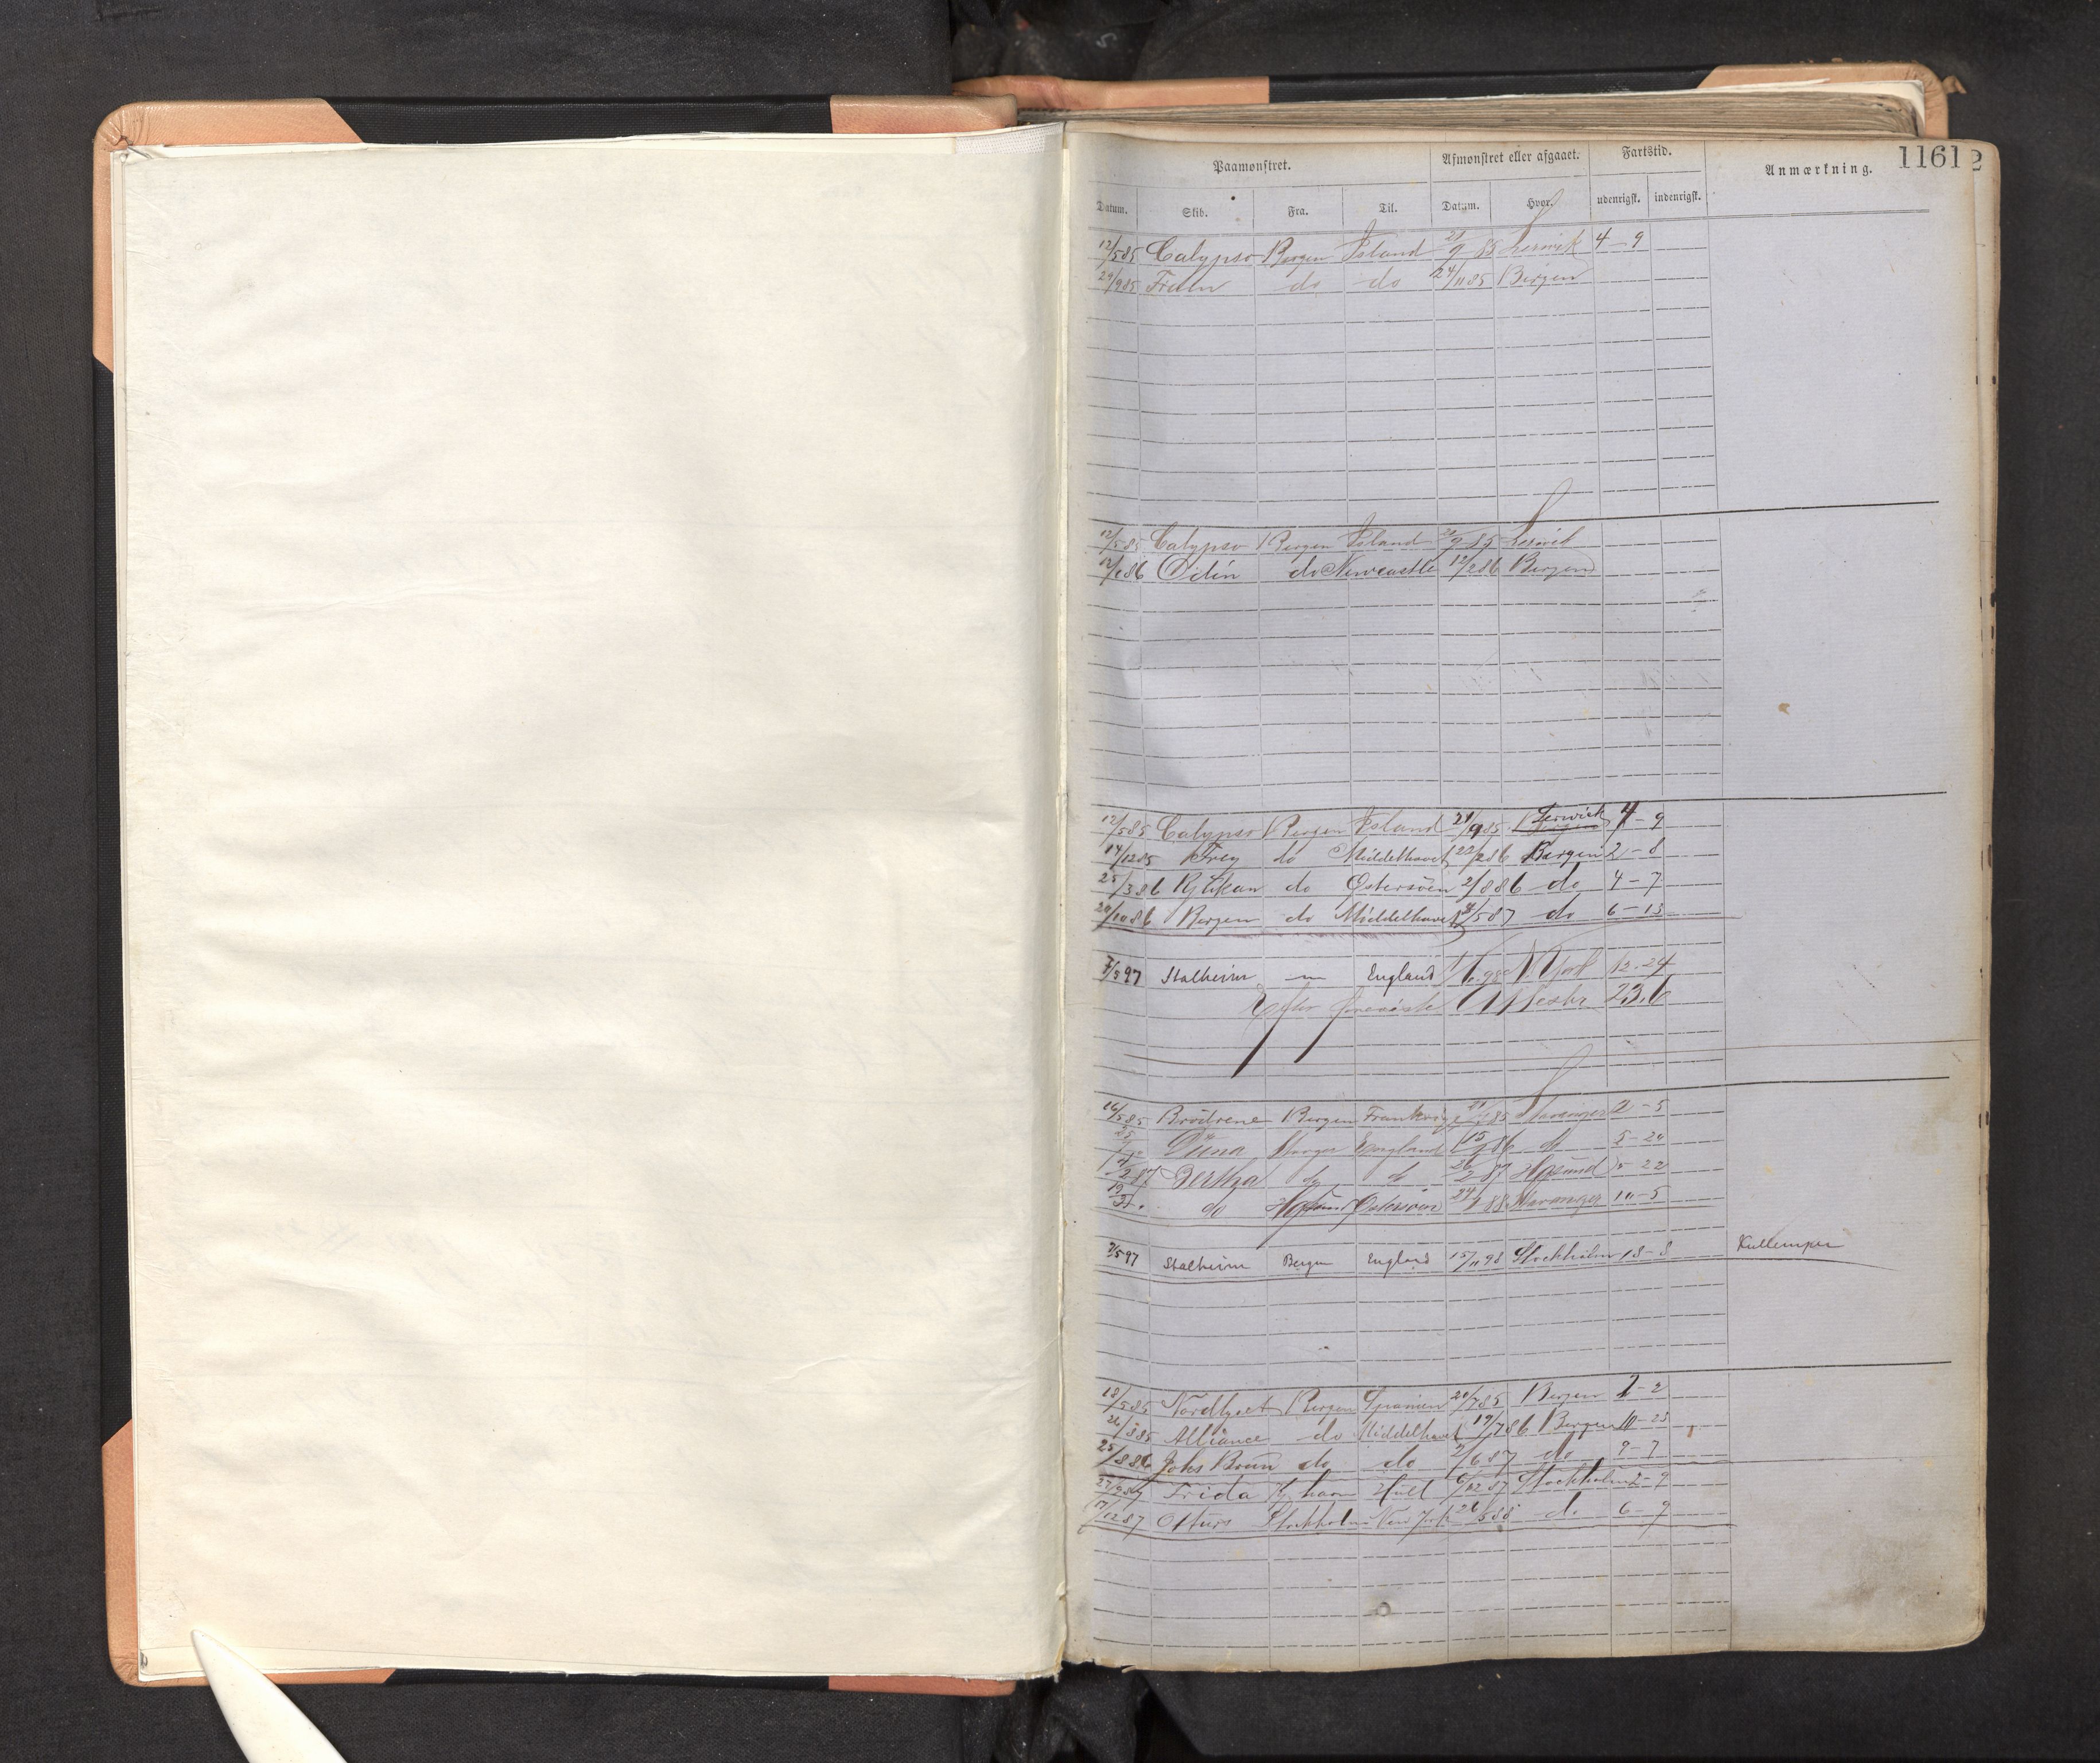 11612
Paamønstret. Afmønstret eller afgaaet. Fartstid. Anmærkning.
Datum. Skib. Fra. Til. Datum. Hvor. udenrigsk. indenrigsk.
12/5 85 Calypso Bergen Island 21/9 85 Lerwick 4-9
29/9 85 do do 24/11 85 Bergen
12/5 85 Calypso Bergen Island 21/9 85 Lerwick
86 Odin do Newcastle 12/2 86 Bergen
12/5 85 Calypso Bergen Island 21/9 85 Lerwick 4-9
14/12 85 Frey do Middelhavet 22/2 86 Bergen 2-8
25/3 86 Rjukan do Østersöen 2/8 86 do 4-7
20/10 86 Bergen do Middelhavet 3/5 87 do 6-13
7/5 97 Stalheim England 1/6.98 N. York 12-24
Efter 23.6
16/5 85 Brödrene Bergen 85 Stavanger 2-5
Stavger England 15 86 d 5-24
Bertha do d 26/2 87 22
do Østersöen 88 Stavanger 10-5
7/5 97 Stalheim Bergen England 15/11 98 Stockholm 18-8
18/5 85 Nordlyset Bergen Spanien 20/7 85 Bergen 2-2
26/8 85 Alliance do Middelhavet 19/7 86 Bergen 10-23
25/8 86 Johs Brun do do 2/6 87 do 9-7
27/9 87 Frida Kjhavn Hull 6/12 87 Stockholm 2-9
17/12 87 Stockholm New York 26/5 88 do 6-9